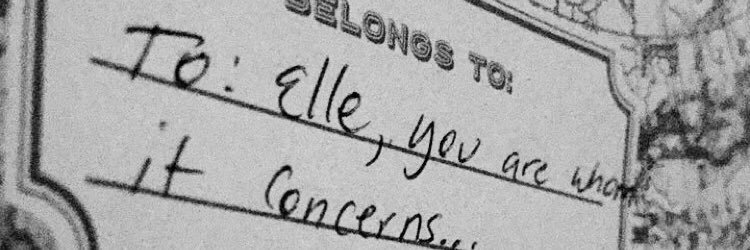 BELONGS TO:
To: Elle, you are whom
it concerns...